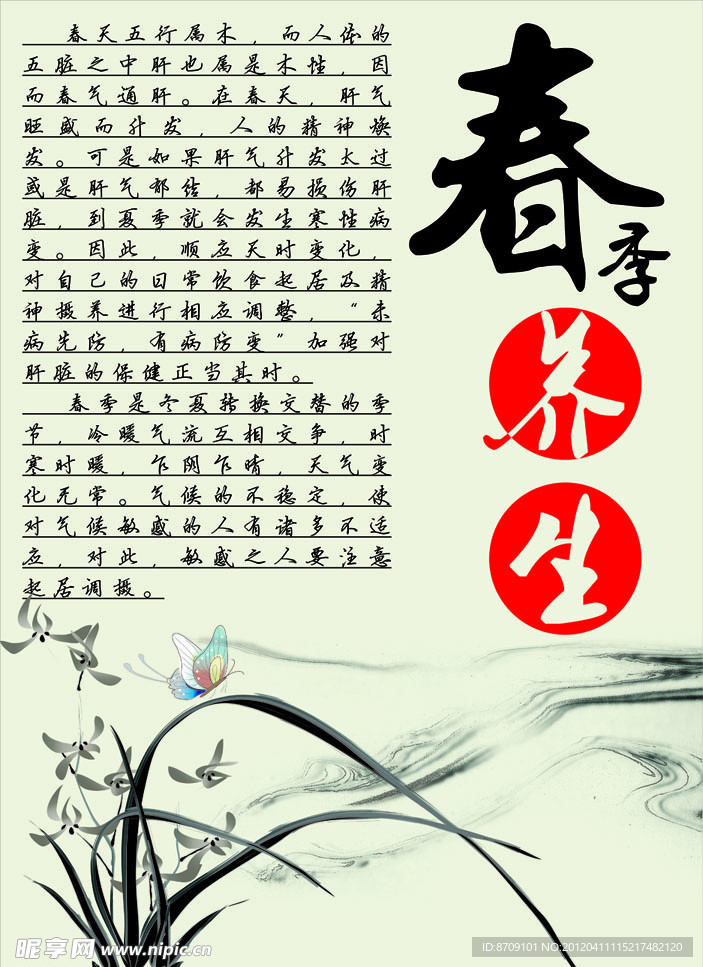 春天五行属木，而人体的
五脏之中肝也属是木性，因
而春气通肝。在春天，肝气
旺盛而升发，人的精神焕
发。可是如果肝气升发太过
或是肝气郁结，都易损伤肝
脏，到夏季就会发生寒性病
变。因此，顺应天时变化，
对自己的日常饮食起居及精
神摄养进行相应调整，“未
病先防，有病防变”加强对
肝脏的保健正当其时。
春季是冬夏转换交替的季
节，冷暖气流互相交争，时
寒时暖，乍阴乍晴，天气变
化无常。气候的不稳定，使
对气候敏感的人有诸多不适
应，对此，敏感之人要注意
起居调摄。
春季
养
生
昵享网 www.nipic.cn
ID:8709101 NO:20120411115217482120